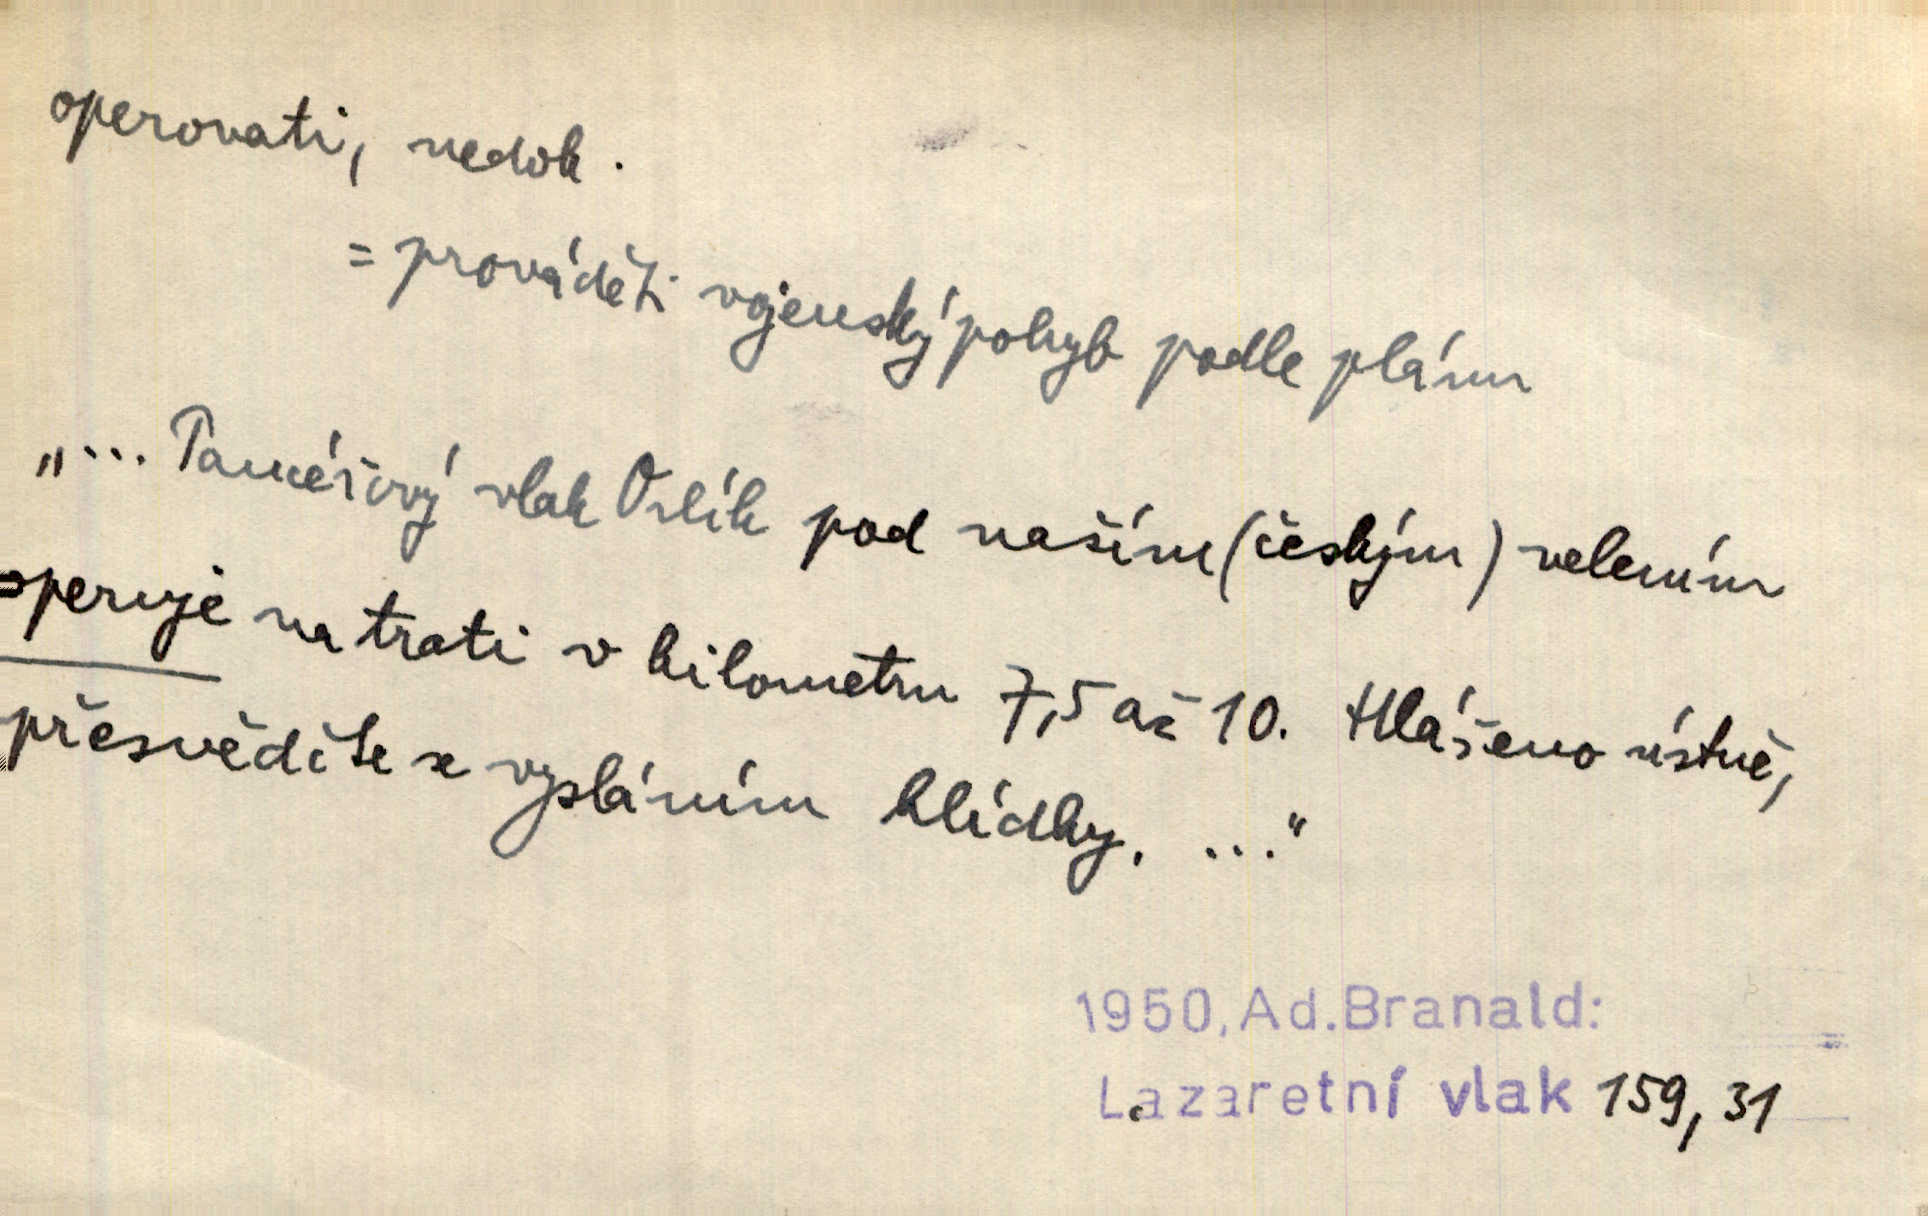 operovati, nedok.
= prováděti vojenský pohyb podle plánu
„... Pancéřový vlak Orlík pod naším (českým) velením
operuje na trati v kilometru 7,5 až 10. Hlášeno ústně,
přesvědčte se vysláním hlídky. ..."
1950, Ad. Branald:
Lazaretní vlak 159, 31